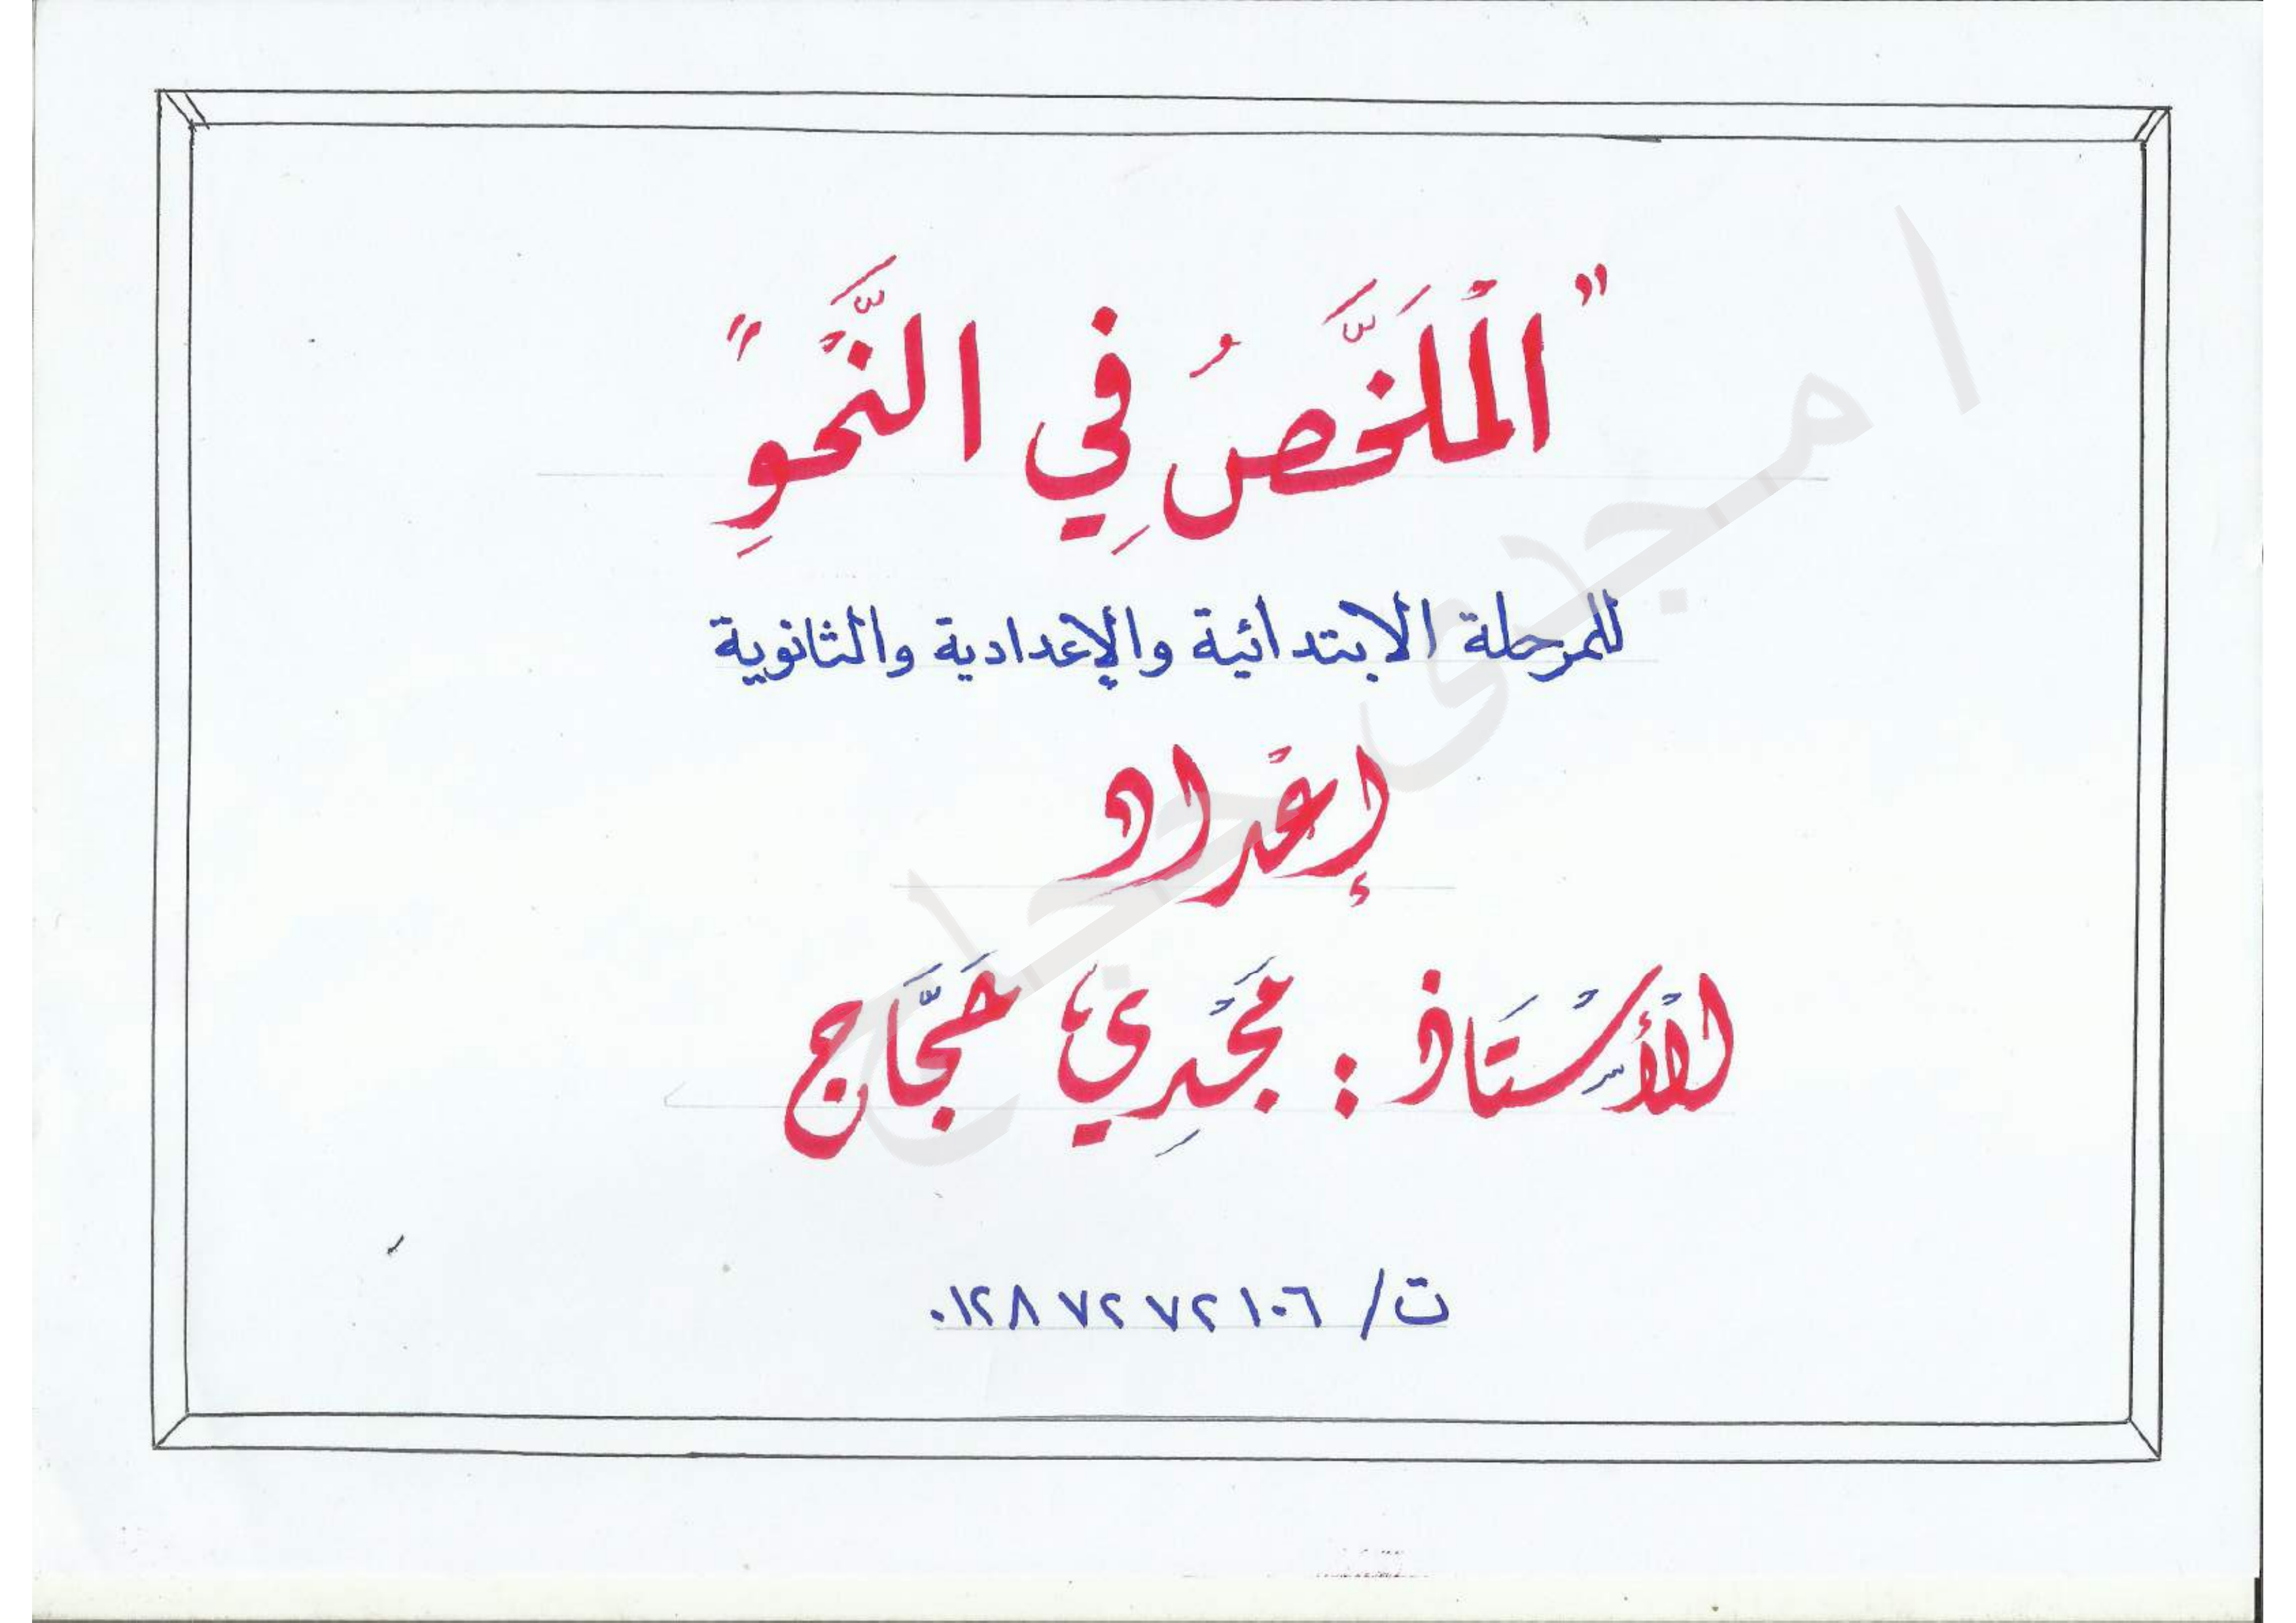 "الْمُلَخَّصُ فِي النَّحْوِ"
للمرحلة الابتدائية والإعدادية والثانوية
إعْداد
الأُسْتَاذ : مَجْدِي حَجَّاج
ت/ ٠١٢٨٧٢٧٢١٠٦
ا مجدى حجاج